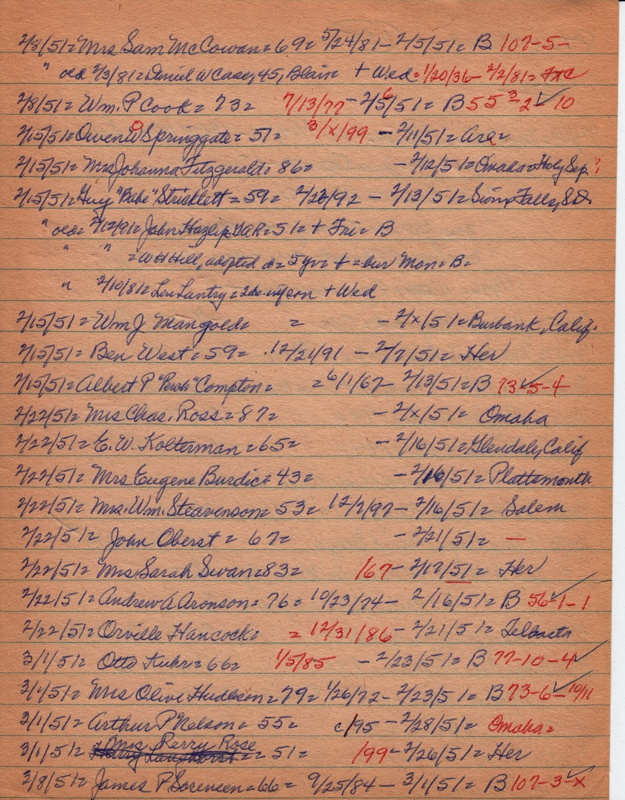 2/8/51= Mrs Sam McCowan= 69= 5/24/81 - 2/5/51= B 107-5-
" old 2/3/81= Daniel W Casey, 45, Blair + Wed= 1/20/36 - 2/2/81=
2/8/51= Wm. P Cook= 73= 7/13/77 - 2/5/51= B 55 3-2 ✓ 10
2/15/51= Owen D Springgate= 51= 3/x/99 - 2/11/51=
2/15/51= Mrs Johanna Fitzgerald= 86= - 2/12/51= Omaha= Holy Sep ?
2/15/51= Guy "Babe" Stricklett= 59= 2/28/92 - 2/13/51= Sioux Falls, SD
" old= 2/12/91= John Hazlip GAR= 51= + Fri= B
" " = W H Hill, adopted d= 5 yr= + = bur Mon= B=
" 2/10/81= Lou Lantry= + Wed
2/15/51= Wm J Mangold= = - 2/x/51= Burbank, Calif.
2/15/51= Ben West= 59= 12/21/91 - 2/7/51= Her
2/15/51= Albert P "Perch" Compton= = 6/1/67 - 2/13/51= B 73-5-4
2/22/51= Mrs Chas. Ross= 87= - 2/x/51= Omaha
2/22/51= E. W. Kolterman= 65= - 2/16/51= Glendale, Calif
2/22/51= Mrs Eugene Burdic= 43= - 2/16/51= Plattsmouth
2/22/51= Mrs. Wm. Steavenson= 53= 12/2/97 - 2/16/51= Salem
2/22/51= John Oberst= 67= - 2/21/51= —
2/22/51= Mrs Sarah Swan= 83= 167 - 2/17/51= Her
2/22/51= Andrew A Aronson= 76= 10/23/74 - 2/16/51= B 56-1-1
2/22/51= Orville Hancock= = 12/31/86 - 2/21/51= Telbasta
3/1/51= Otto Kuhr= 66= 1/5/85 - 2/23/51= B 77-10-4 ✓
3/1/51= Mrs Olive Hudson= 79= 1/26/72 - 2/23/51= B 73-6- 10/11
3/1/51= Arthur P Nelson= 55= c/95 - 2/28/51= Omaha=
3/1/51= Mrs. Perry Rose= 51= 199 - 2/26/51= Her
3/8/51= James P Sorensen= 66= 9/25/84 - 3/1/51= B 107-3-x